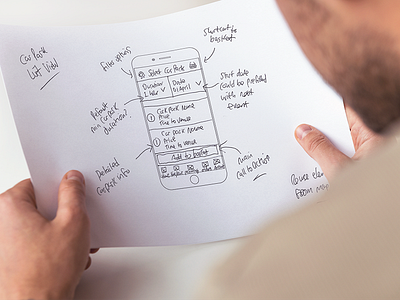 Car Park
List View
Filter options
Shortcut to
basket
Select Car Park
Duration
1 hour
Date
01 April
Default
min car park
duration?
Start date
could be prefilled
with next
event
Car park name
Price
Time to venue
Car park name
Price
Time to venue
Add to basket
Detailed
car park info
main
call to action
from map